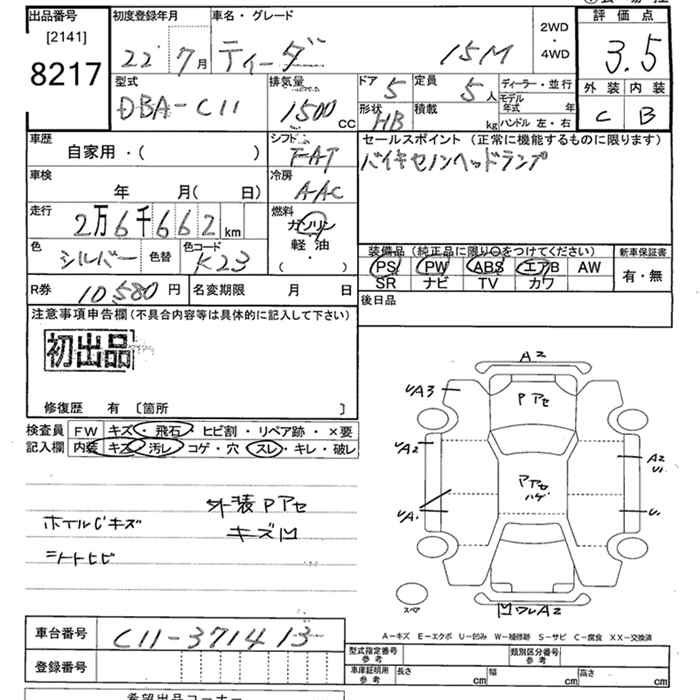 出品番号
[2141]
8217
初度登録年月
22 7月
車名・グレード
ティーダ 15M
2WD
・
4WD
評価点
3.5
外装 内装
C B
型式
DBA-C11
排気量
1500 CC
ドア 5
定員 5人
形状 HB
積載 kg
ディーラー・並行
モデル年式 年
ハンドル 左・右
車歴
自家用・( )
シフト
FAT
セールスポイント (正常に機能するものに限ります)
バイキセノンヘッドランプ
車検
年 月( 日)
冷房
AAC
走行
2万6千662km
燃料
ガソリン
軽油
( ・ )
色
シルバー
色替
色コード
K23
装備品 (純正品に限り〇をつけてください)
PS PW ABS エアB AW
SR ナビ TV カワ
新車保証書
有・無
R券 10580円
名変期限 月 日
後日品
注意事項申告欄(不具合内容等は具体的に記入して下さい)
初出品
修復歴 有 〔箇所 〕
検査員 FW キズ・飛石・ヒビ割・リペア跡・×要
記入欄 内装 キズ・汚レ・コゲ・穴・スレ・キレ・破レ
外装Pアセ
ホイルCキズ
キズ凹
シートヒビ
A2
UA3
Pアセ
UA2
A2
U1
Pアセ
ハゲ
UA1
U1
スペア
凹ワレA2
A-キズ E-エクボ U-凹ミ W-補修跡 S-サビ C-腐食 XX-交換済
車台番号 C11-371413
登録番号
型式指定番号 参考
類別区分番号 参考
車庫証明用 参考
長さ cm
幅 cm
高さ cm
希望出品コーナー